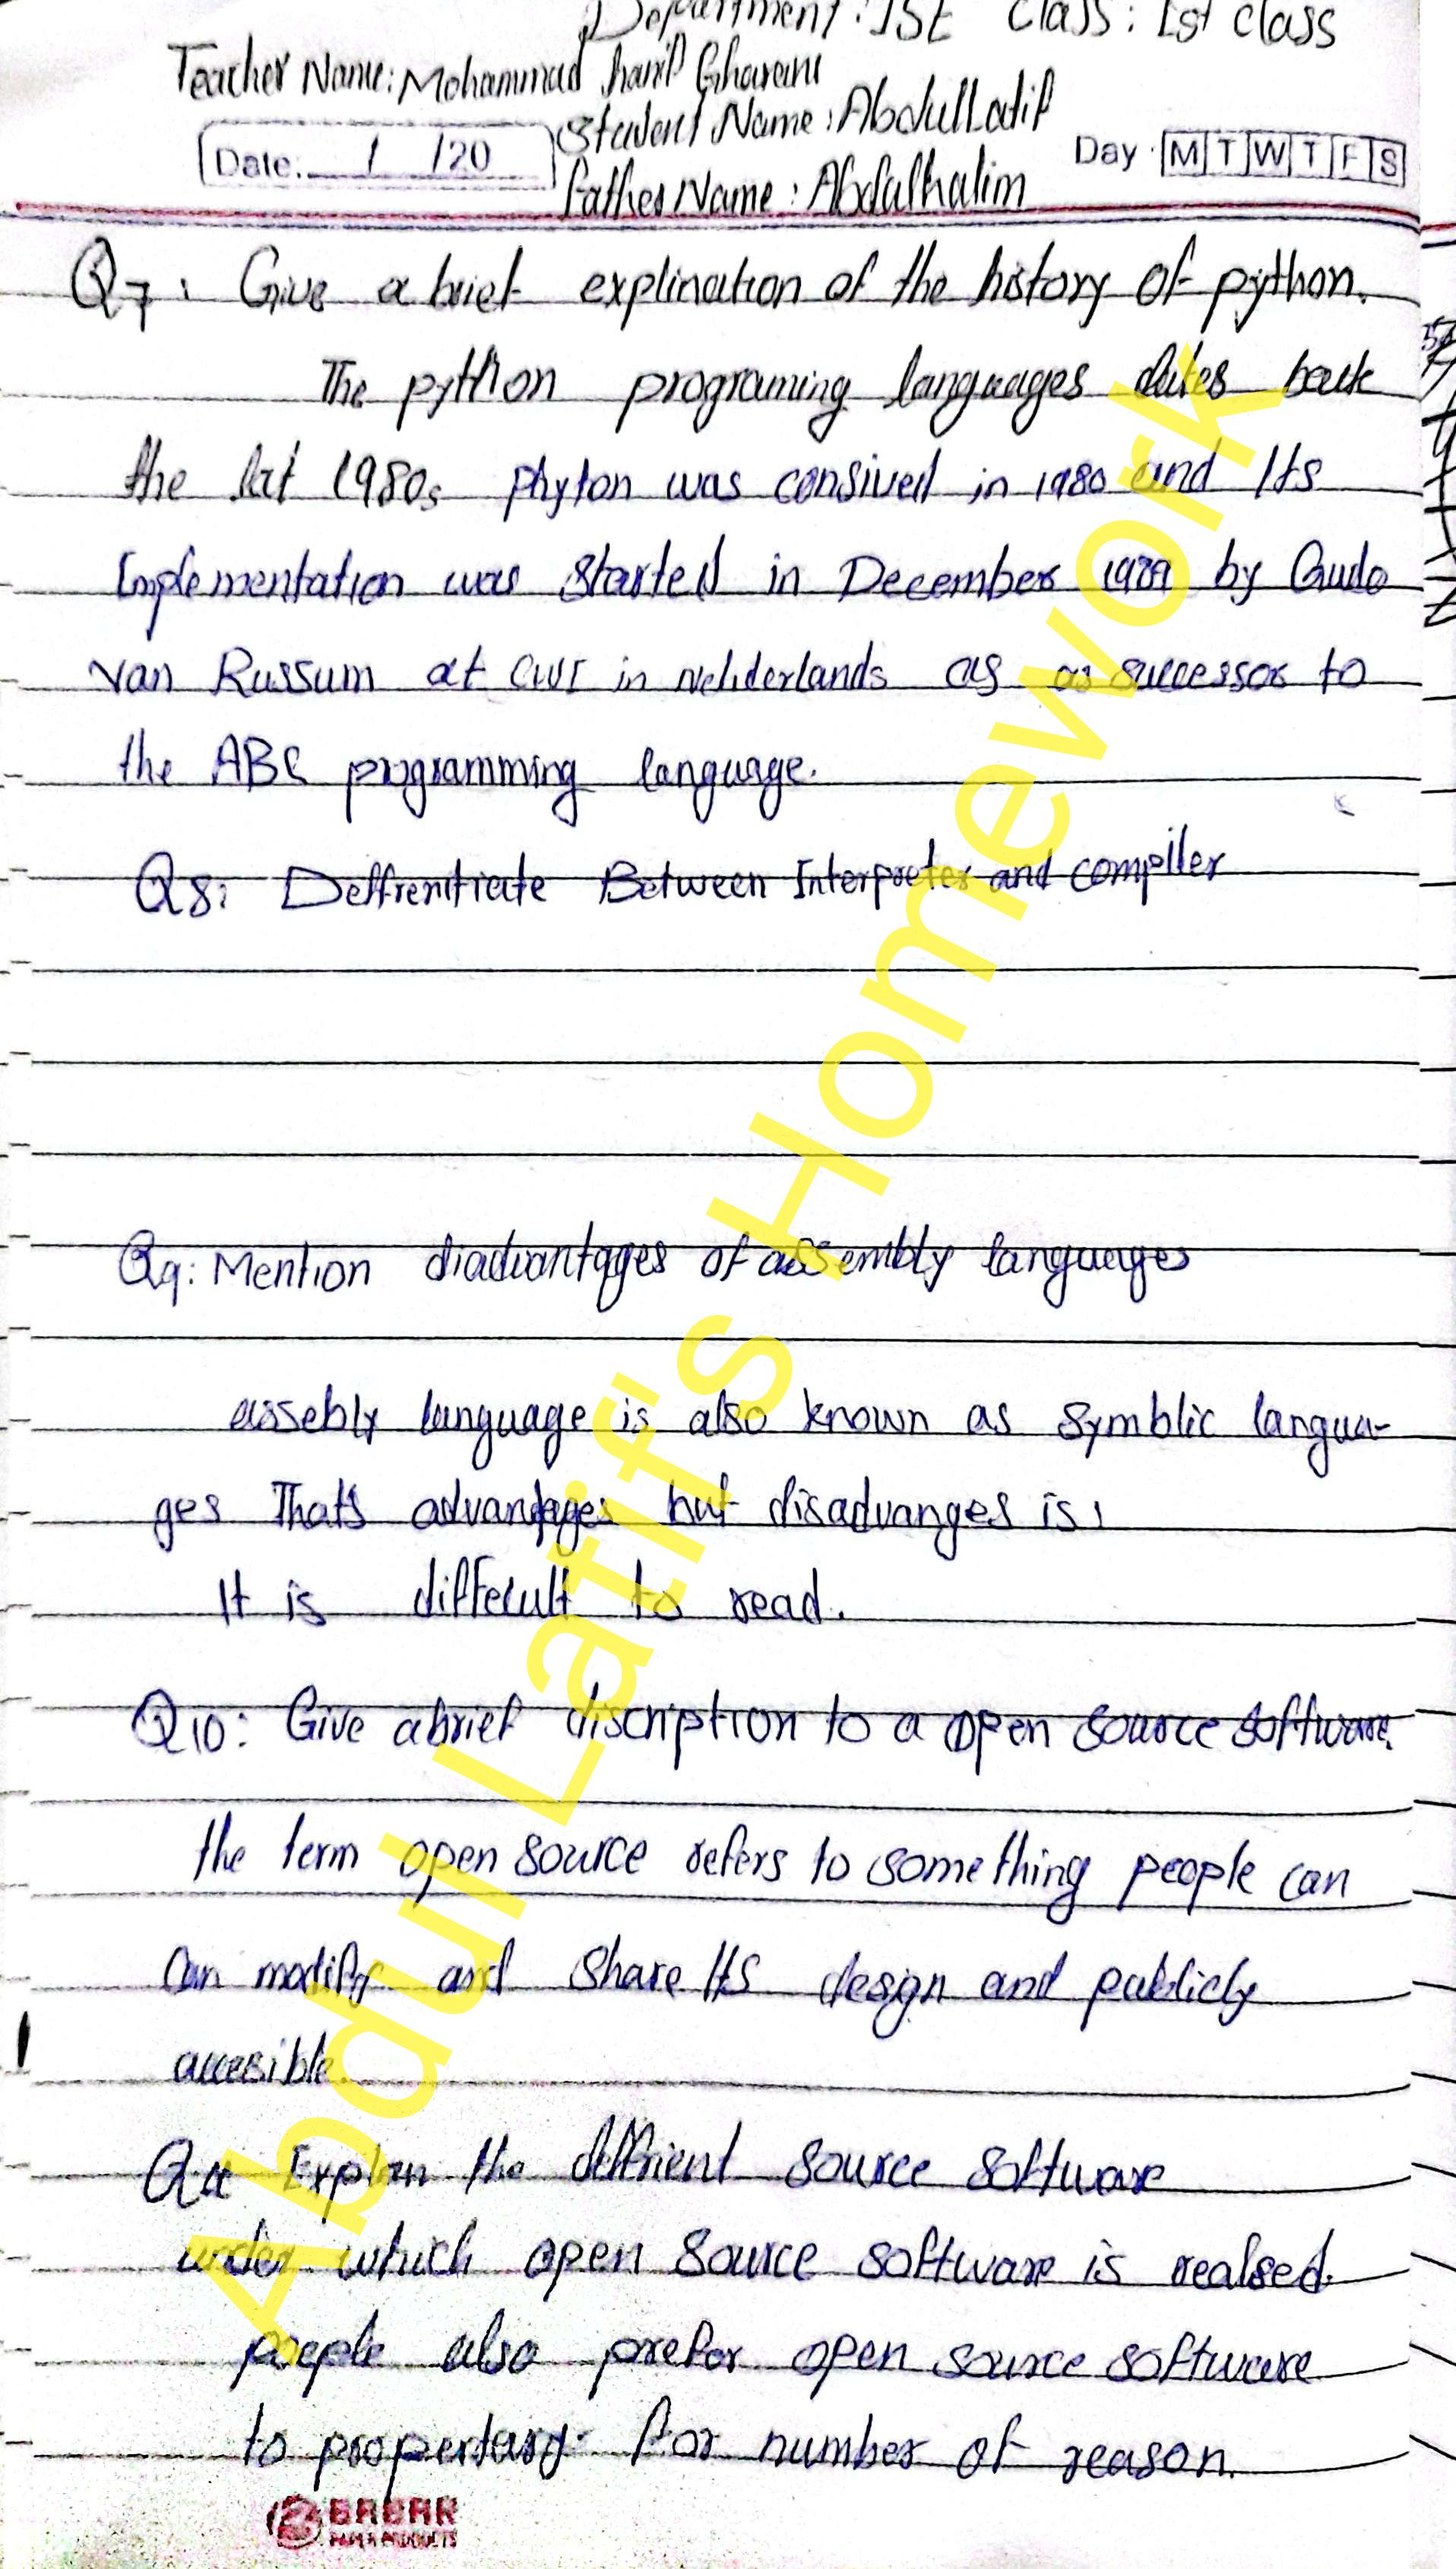 Department: ISE Class: 1st class
Teacher Name: Mohammad Gharani
Student Name: Abdullatif
Date: / /20
Day M T W T F S
Father Name: Abdulhalim
Q7: Give a brief explination of the history of python.
The python programing languages dates back
the lat 1980s phyton was consived in 1980 and Its
Implementation was started in December 1989 by Guido
van Russum at CWI in Nehderlands as as successor to
the ABC programming language.
Q8: Deffrentiate Between Interpreter and compiler
Q9: Mention diadvantages of assembly languages
assebly language is also known as symblic langua-
ges That's advantages but disadvanges is:
It is diffecult to read.
Q10: Give a brief discription to a open source software.
the term open source refers to something people can
can modify and share Its design and publicly
accesible.
Q11 Explan the deffrient source software
under which open source software is realsed.
people also prefor open source software
to propertary for number of reason.
BABAR
PAPER PRODUCTS
Abdul Latif's Homework